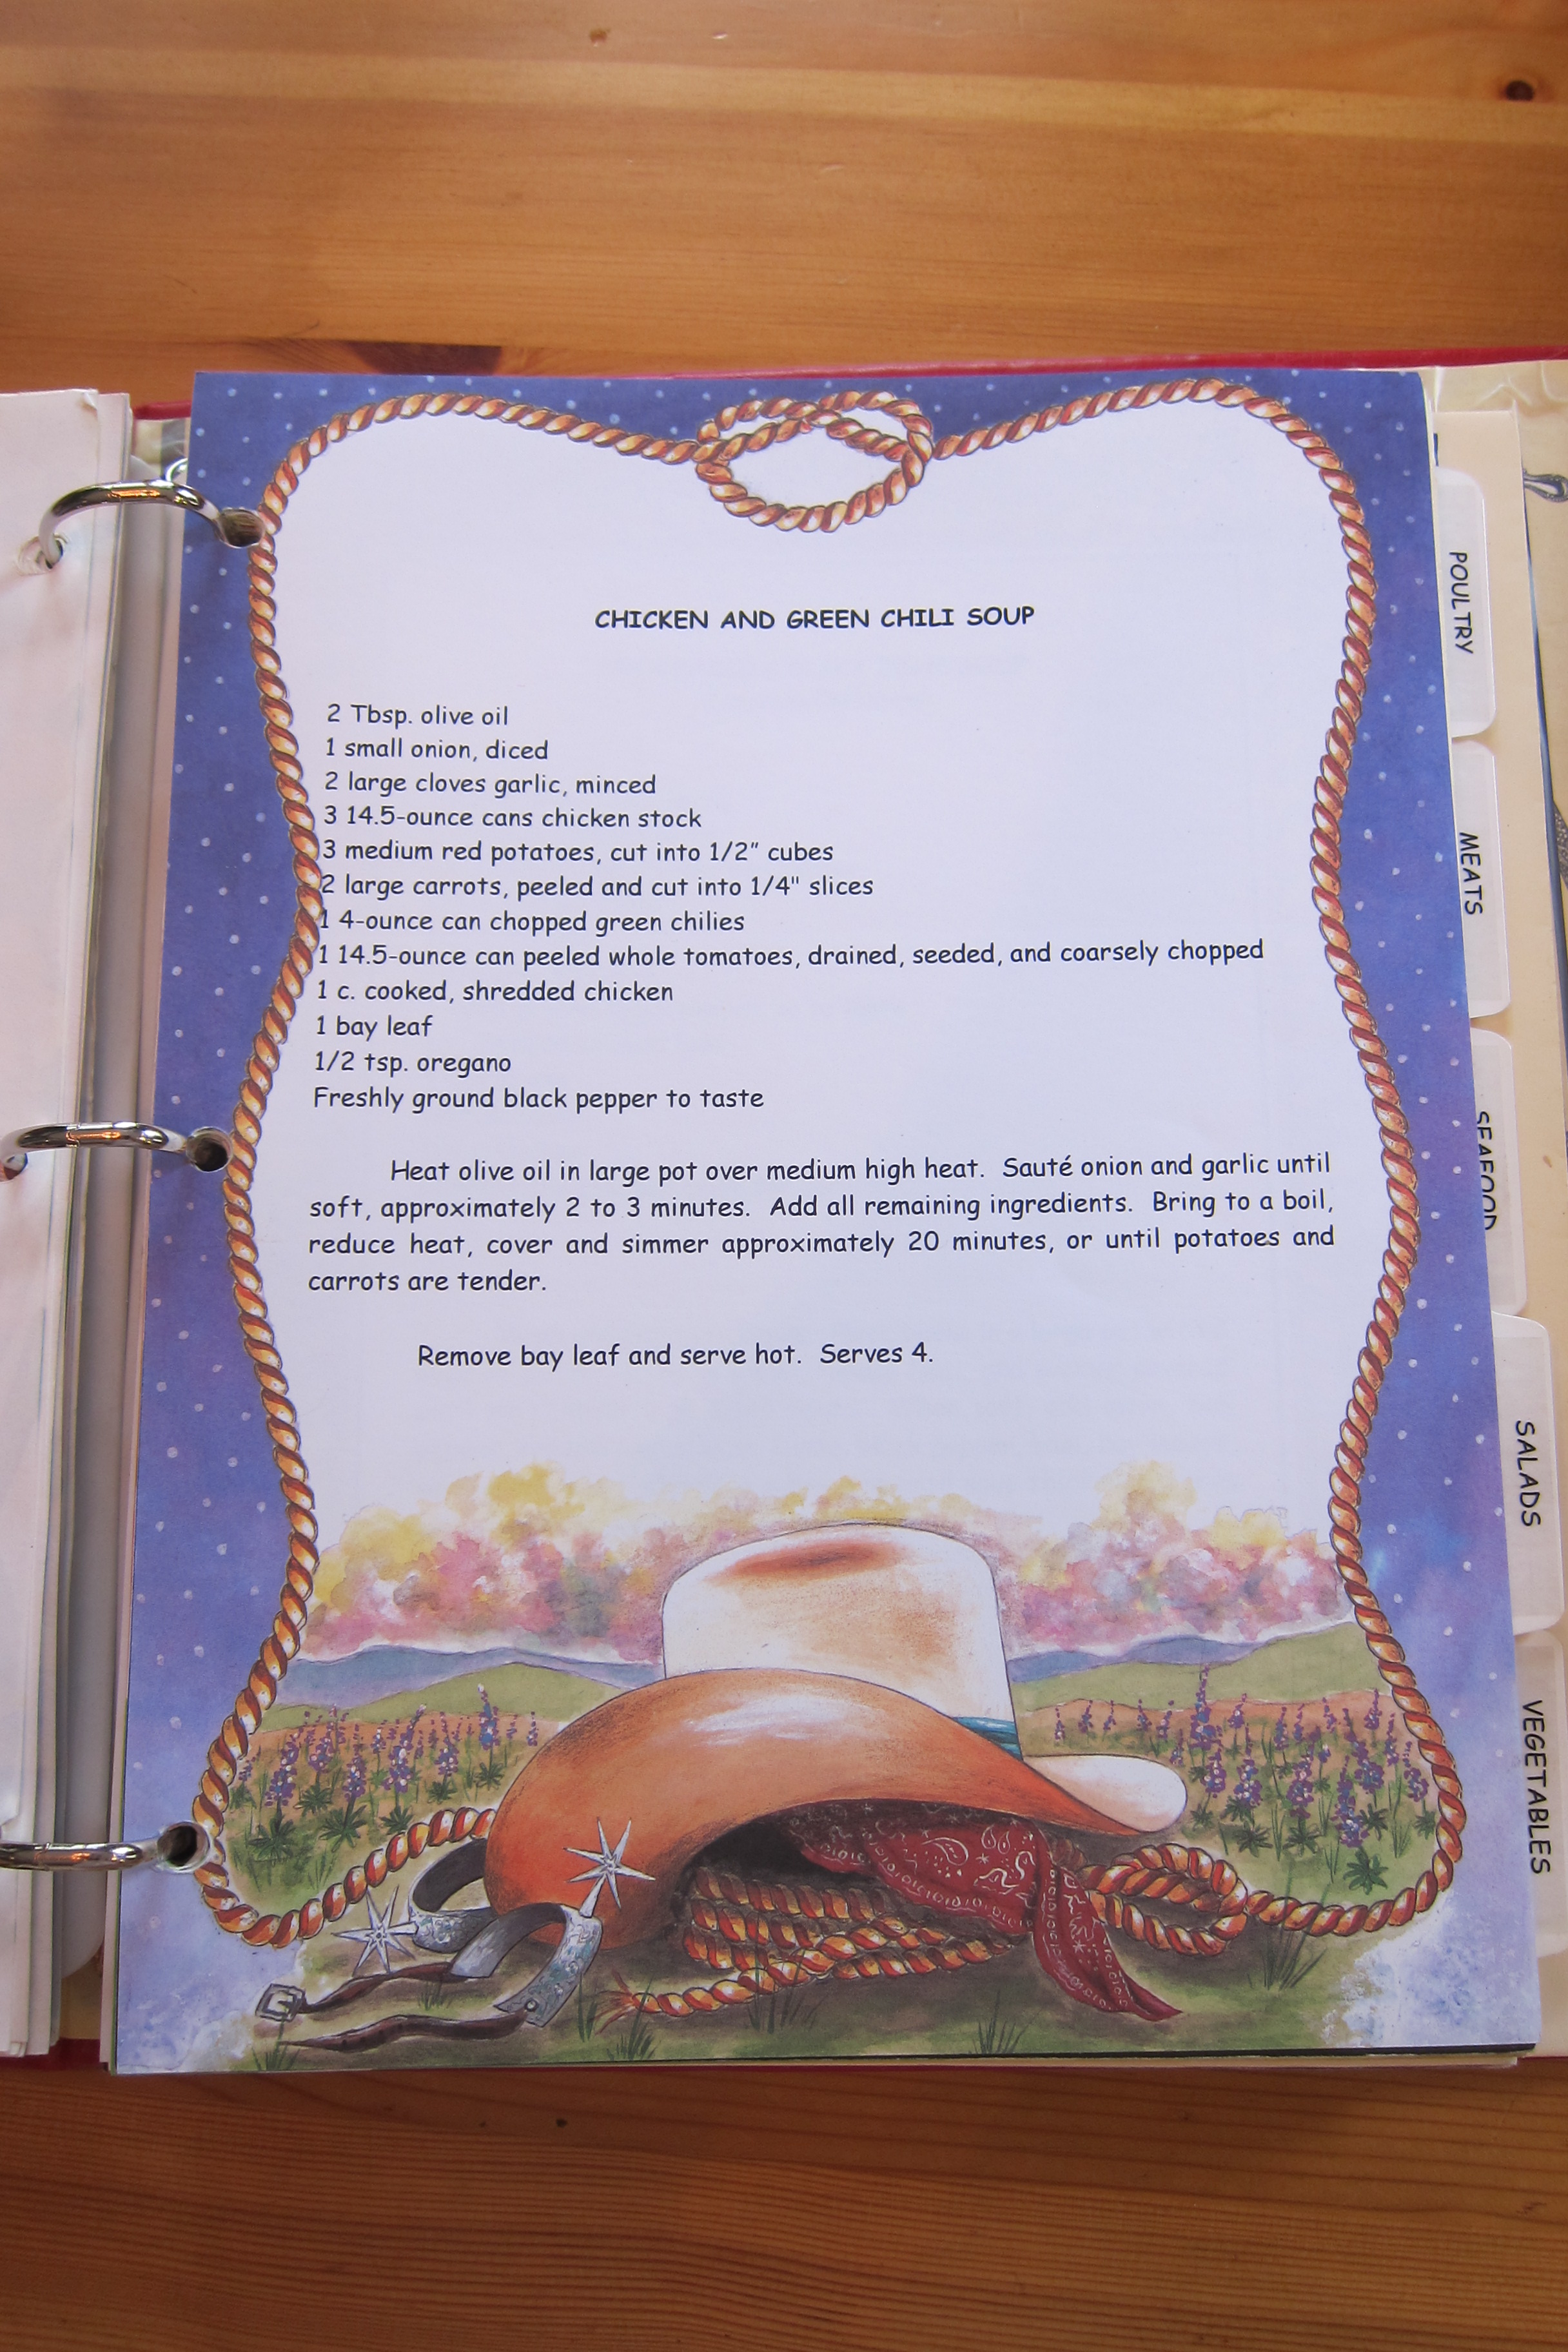 CHICKEN AND GREEN CHILI SOUP
2 Tbsp. olive oil
1 small onion, diced
2 large cloves garlic, minced
3 14.5-ounce cans chicken stock
3 medium red potatoes, cut into 1/2" cubes
2 large carrots, peeled and cut into 1/4" slices
1 4-ounce can chopped green chilies
1 14.5-ounce can peeled whole tomatoes, drained, seeded, and coarsely chopped
1 c. cooked, shredded chicken
1 bay leaf
1/2 tsp. oregano
Freshly ground black pepper to taste
Heat olive oil in large pot over medium high heat. Sauté onion and garlic until
soft, approximately 2 to 3 minutes. Add all remaining ingredients. Bring to a boil,
reduce heat, cover and simmer approximately 20 minutes, or until potatoes and
carrots are tender.
Remove bay leaf and serve hot. Serves 4.
POULTRY
MEATS
SEAFOOD
SALADS
VEGETABLES